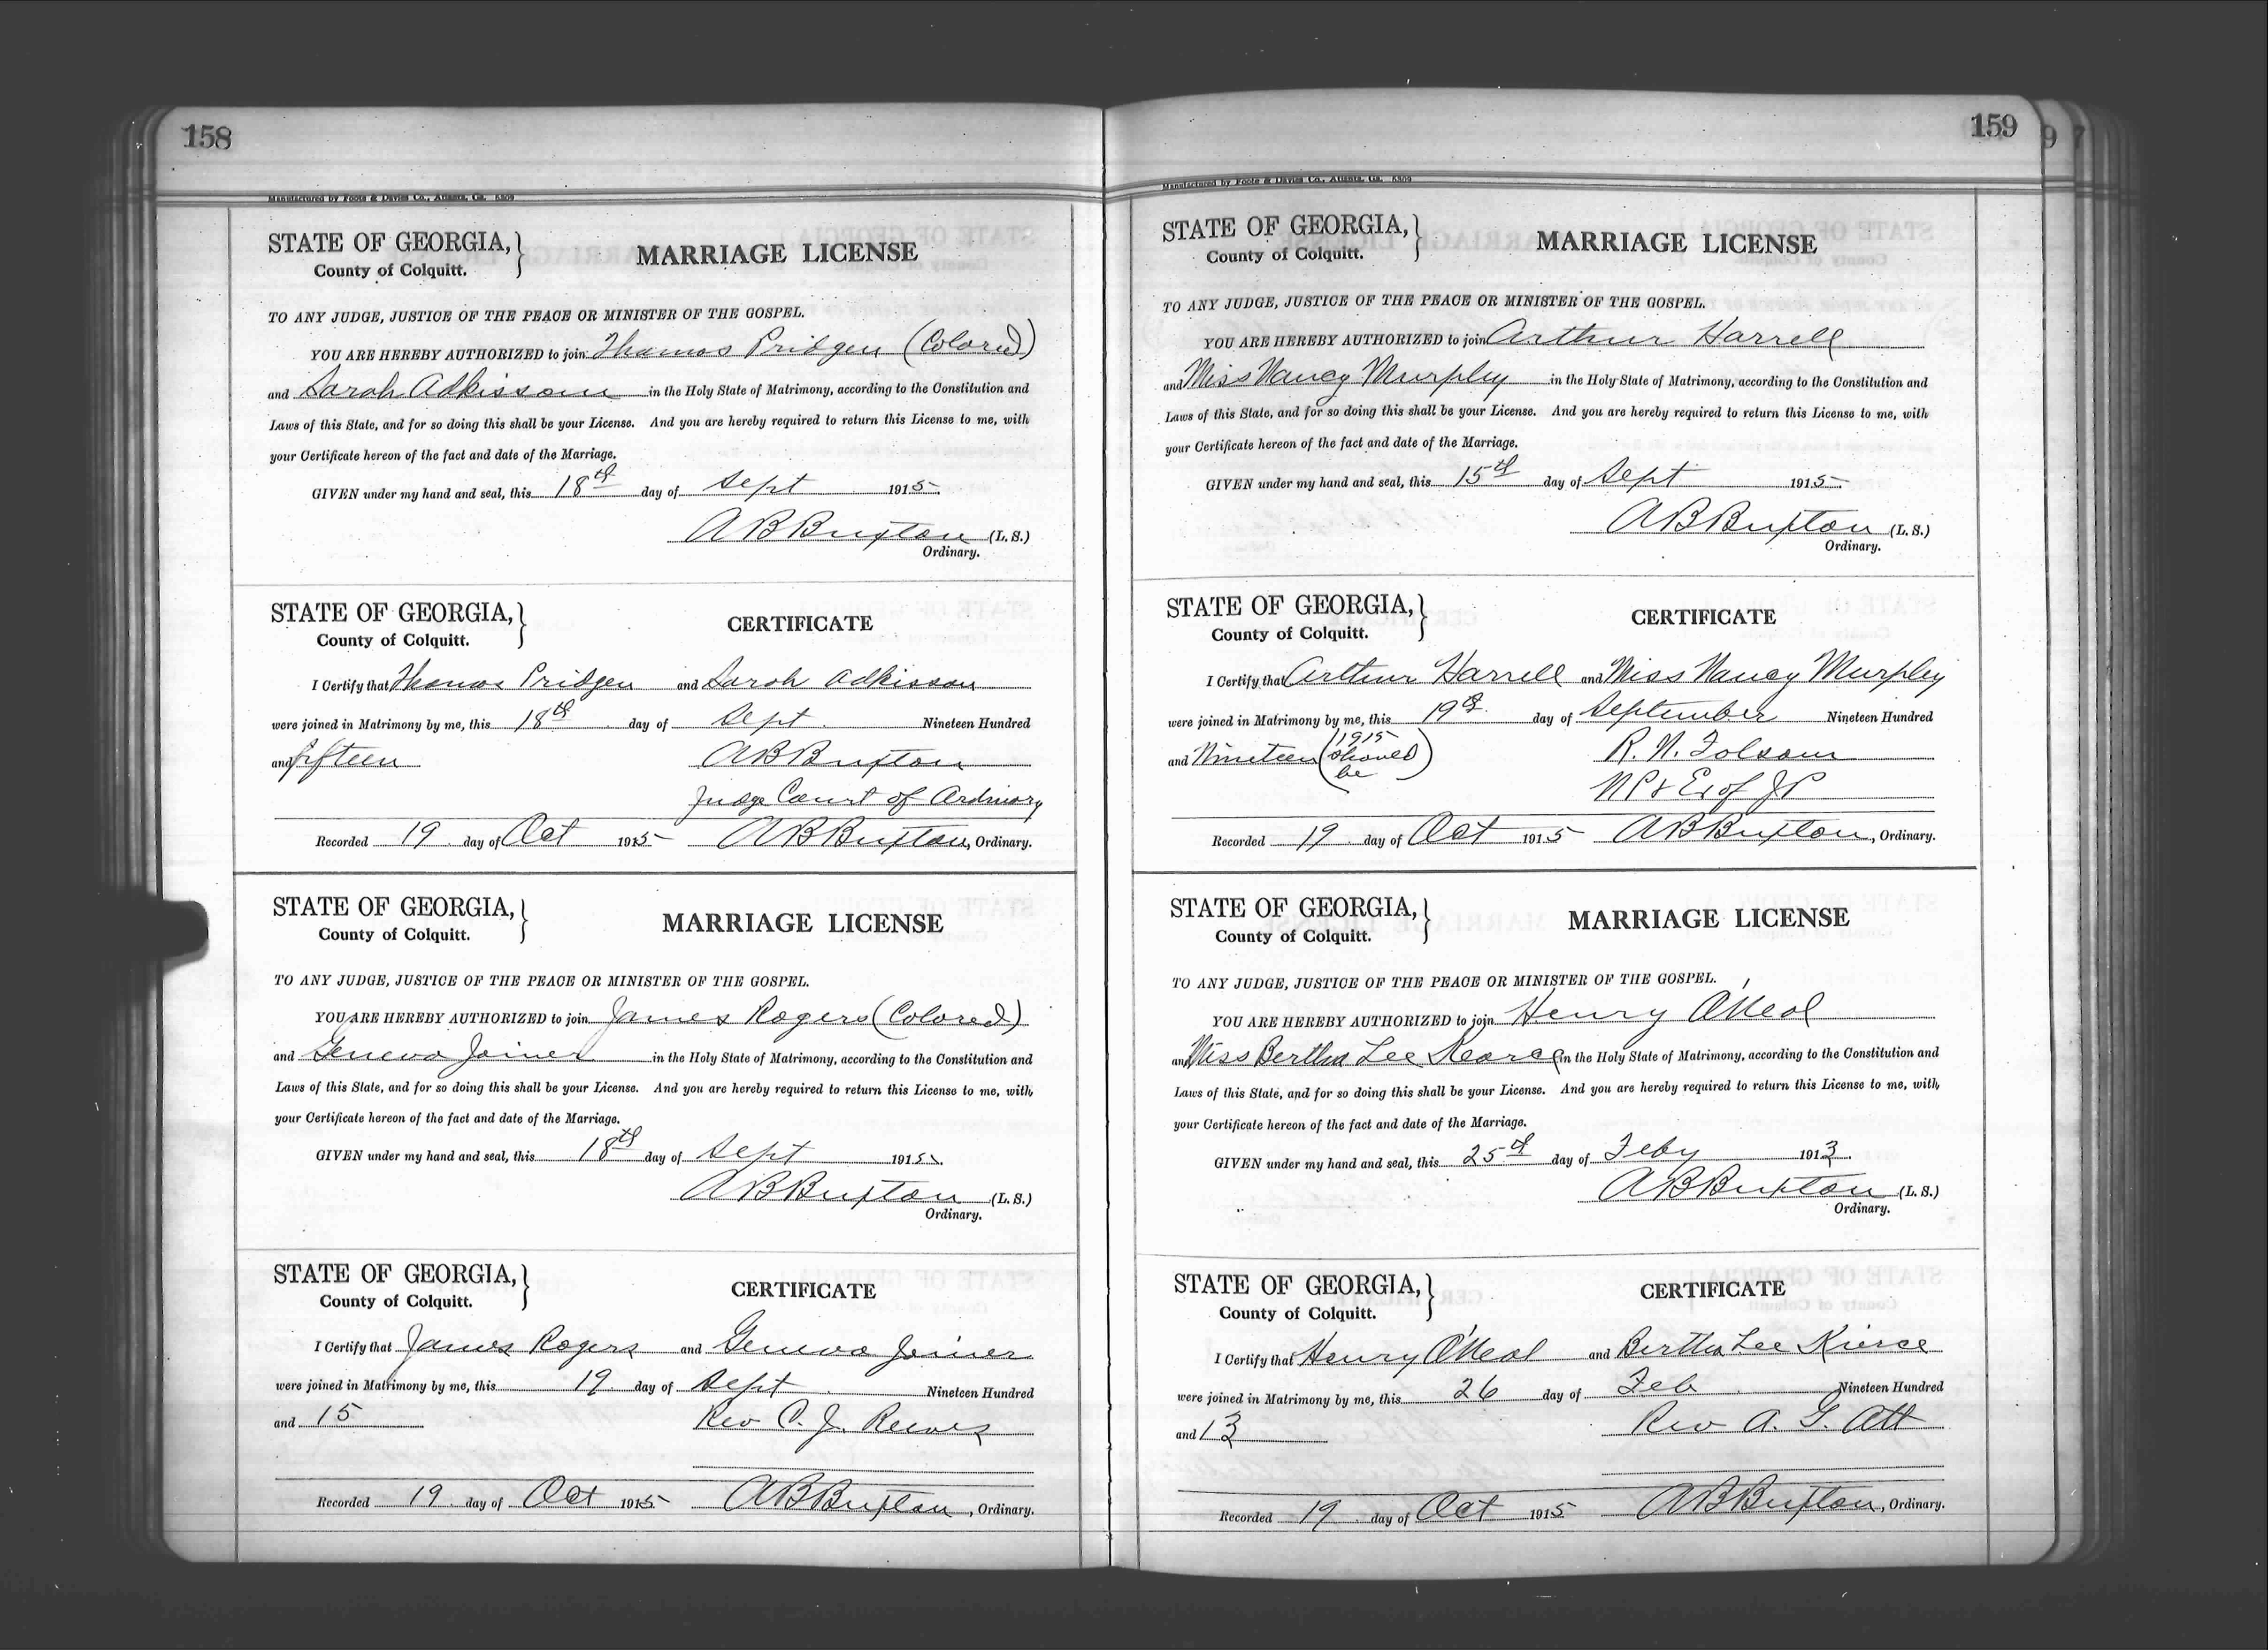 158
Manufactured by Foote & Davies Co., Atlanta, Ga. 5309
STATE OF GEORGIA,
County of Colquitt.
MARRIAGE LICENSE
TO ANY JUDGE, JUSTICE OF THE PEACE OR MINISTER OF THE GOSPEL.
YOU ARE HEREBY AUTHORIZED to join Thomas Pridgen (Colored)
and Sarah Adkisson in the Holy State of Matrimony, according to the Constitution and
Laws of this State, and for so doing this shall be your License. And you are hereby required to return this License to me, with
your Certificate hereon of the fact and date of the Marriage.
GIVEN under my hand and seal, this 18th day of Sept 1915.
A B Buxton (L. S.)
Ordinary.
STATE OF GEORGIA,
County of Colquitt.
CERTIFICATE
I Certify that Thomas Pridgen and Sarah Adkisson
were joined in Matrimony by me, this 18th day of Sept. Nineteen Hundred
and fifteen A B Buxton
Judge Court of Ordinary
Recorded 19 day of Oct 1915 A B Buxton, Ordinary.
STATE OF GEORGIA,
County of Colquitt.
MARRIAGE LICENSE
TO ANY JUDGE, JUSTICE OF THE PEACE OR MINISTER OF THE GOSPEL.
YOU ARE HEREBY AUTHORIZED to join James Rogers (Colored)
and Geneva Joiner in the Holy State of Matrimony, according to the Constitution and
Laws of this State, and for so doing this shall be your License. And you are hereby required to return this License to me, with
your Certificate hereon of the fact and date of the Marriage.
GIVEN under my hand and seal, this 18th day of Sept 1915.
A B Buxton (L. S.)
Ordinary.
STATE OF GEORGIA,
County of Colquitt.
CERTIFICATE
I Certify that James Rogers and Geneva Joiner
were joined in Matrimony by me, this 19 day of Sept. Nineteen Hundred
and 15 Rev C. J. Reeves
Recorded 19 day of Oct 1915 A B Buxton, Ordinary.
159
Manufactured by Foote & Davies Co., Atlanta, Ga. 5309
STATE OF GEORGIA,
County of Colquitt.
MARRIAGE LICENSE
TO ANY JUDGE, JUSTICE OF THE PEACE OR MINISTER OF THE GOSPEL.
YOU ARE HEREBY AUTHORIZED to join Arthur Harrell
and Miss Nancy Murpley in the Holy State of Matrimony, according to the Constitution and
Laws of this State, and for so doing this shall be your License. And you are hereby required to return this License to me, with
your Certificate hereon of the fact and date of the Marriage.
GIVEN under my hand and seal, this 15th day of Sept 1915.
A B Buxton (L. S.)
Ordinary.
STATE OF GEORGIA,
County of Colquitt.
CERTIFICATE
I Certify that Arthur Harrell and Miss Nancy Murpley
were joined in Matrimony by me, this 19th day of September Nineteen Hundred
and Nineteen (1915 should be) R. N. Folsom
N P & Ex of J P
Recorded 19 day of Oct 1915 A B Buxton, Ordinary.
STATE OF GEORGIA,
County of Colquitt.
MARRIAGE LICENSE
TO ANY JUDGE, JUSTICE OF THE PEACE OR MINISTER OF THE GOSPEL.
YOU ARE HEREBY AUTHORIZED to join Henry O'Neal
and Miss Bertha Lee Kearce in the Holy State of Matrimony, according to the Constitution and
Laws of this State, and for so doing this shall be your License. And you are hereby required to return this License to me, with
your Certificate hereon of the fact and date of the Marriage.
GIVEN under my hand and seal, this 25th day of Feby 1913.
A B Buxton (L. S.)
Ordinary.
STATE OF GEORGIA,
County of Colquitt.
CERTIFICATE
I Certify that Henry O'Neal and Bertha Lee Kierce
were joined in Matrimony by me, this 26 day of Feb. Nineteen Hundred
and 13 Rev A. G. Ott
Recorded 19 day of Oct 1915 A B Buxton, Ordinary.